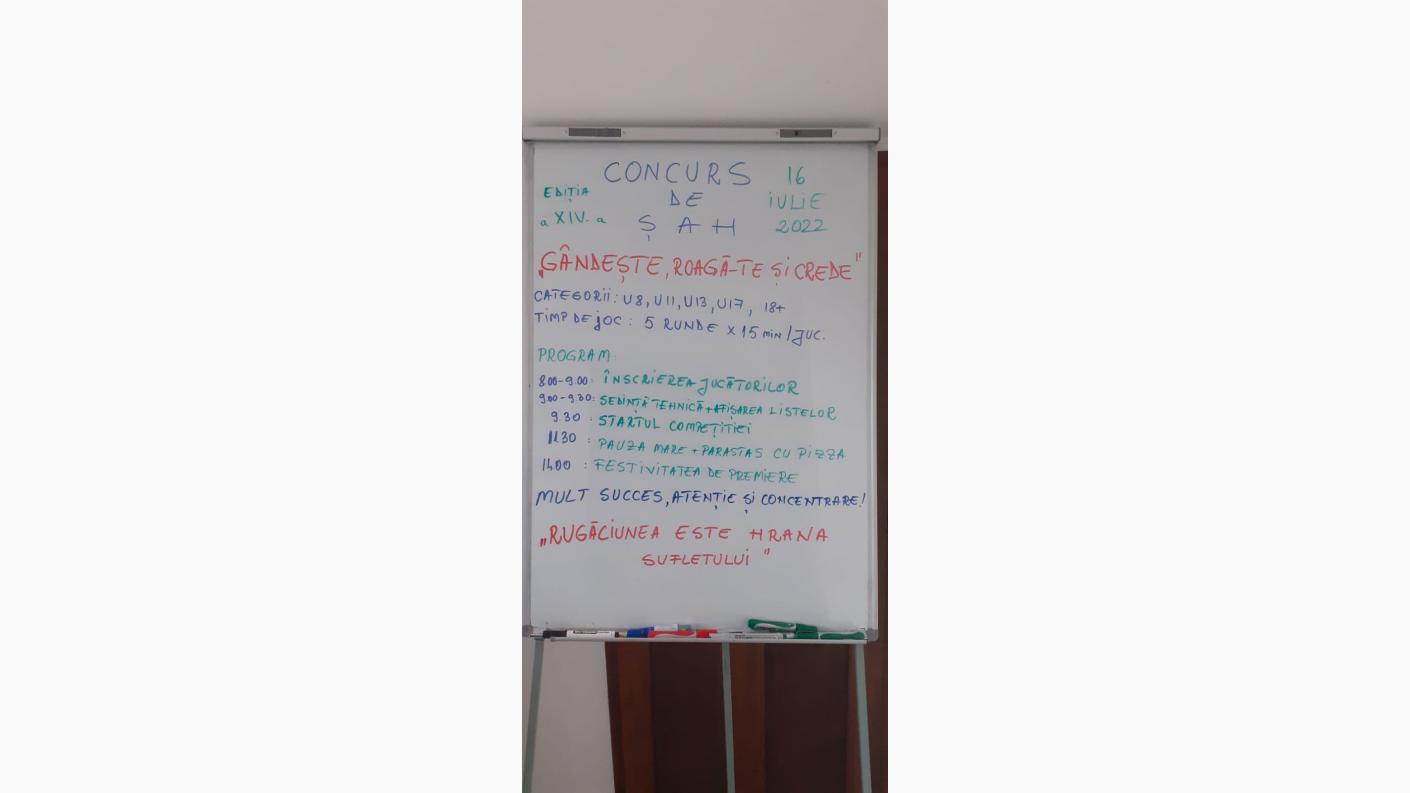 CONCURS
DE
ȘAH
EDIȚIA
a XIV-a
16
IULIE
2022
„GÂNDEȘTE, ROAGĂ-TE ȘI CREDE”
CATEGORII: U8, U11, U13, U17, 18+
TIMP DE JOC: 5 RUNDE X 15 MIN/JUC.
PROGRAM
800-9.00: ÎNSCRIEREA JUCĂTORILOR
900-9.30: ȘEDINȚĂ TEHNICĂ + AFIȘAREA LISTELOR
9.30 : STARTUL COMPETIȚIEI
1130 : PAUZA MARE + PARASTAS CU PIZZA
1400 : FESTIVITATEA DE PREMIERE
MULT SUCCES, ATENȚIE ȘI CONCENTRARE!
„RUGĂCIUNEA ESTE HRANA
SUFLETULUI”